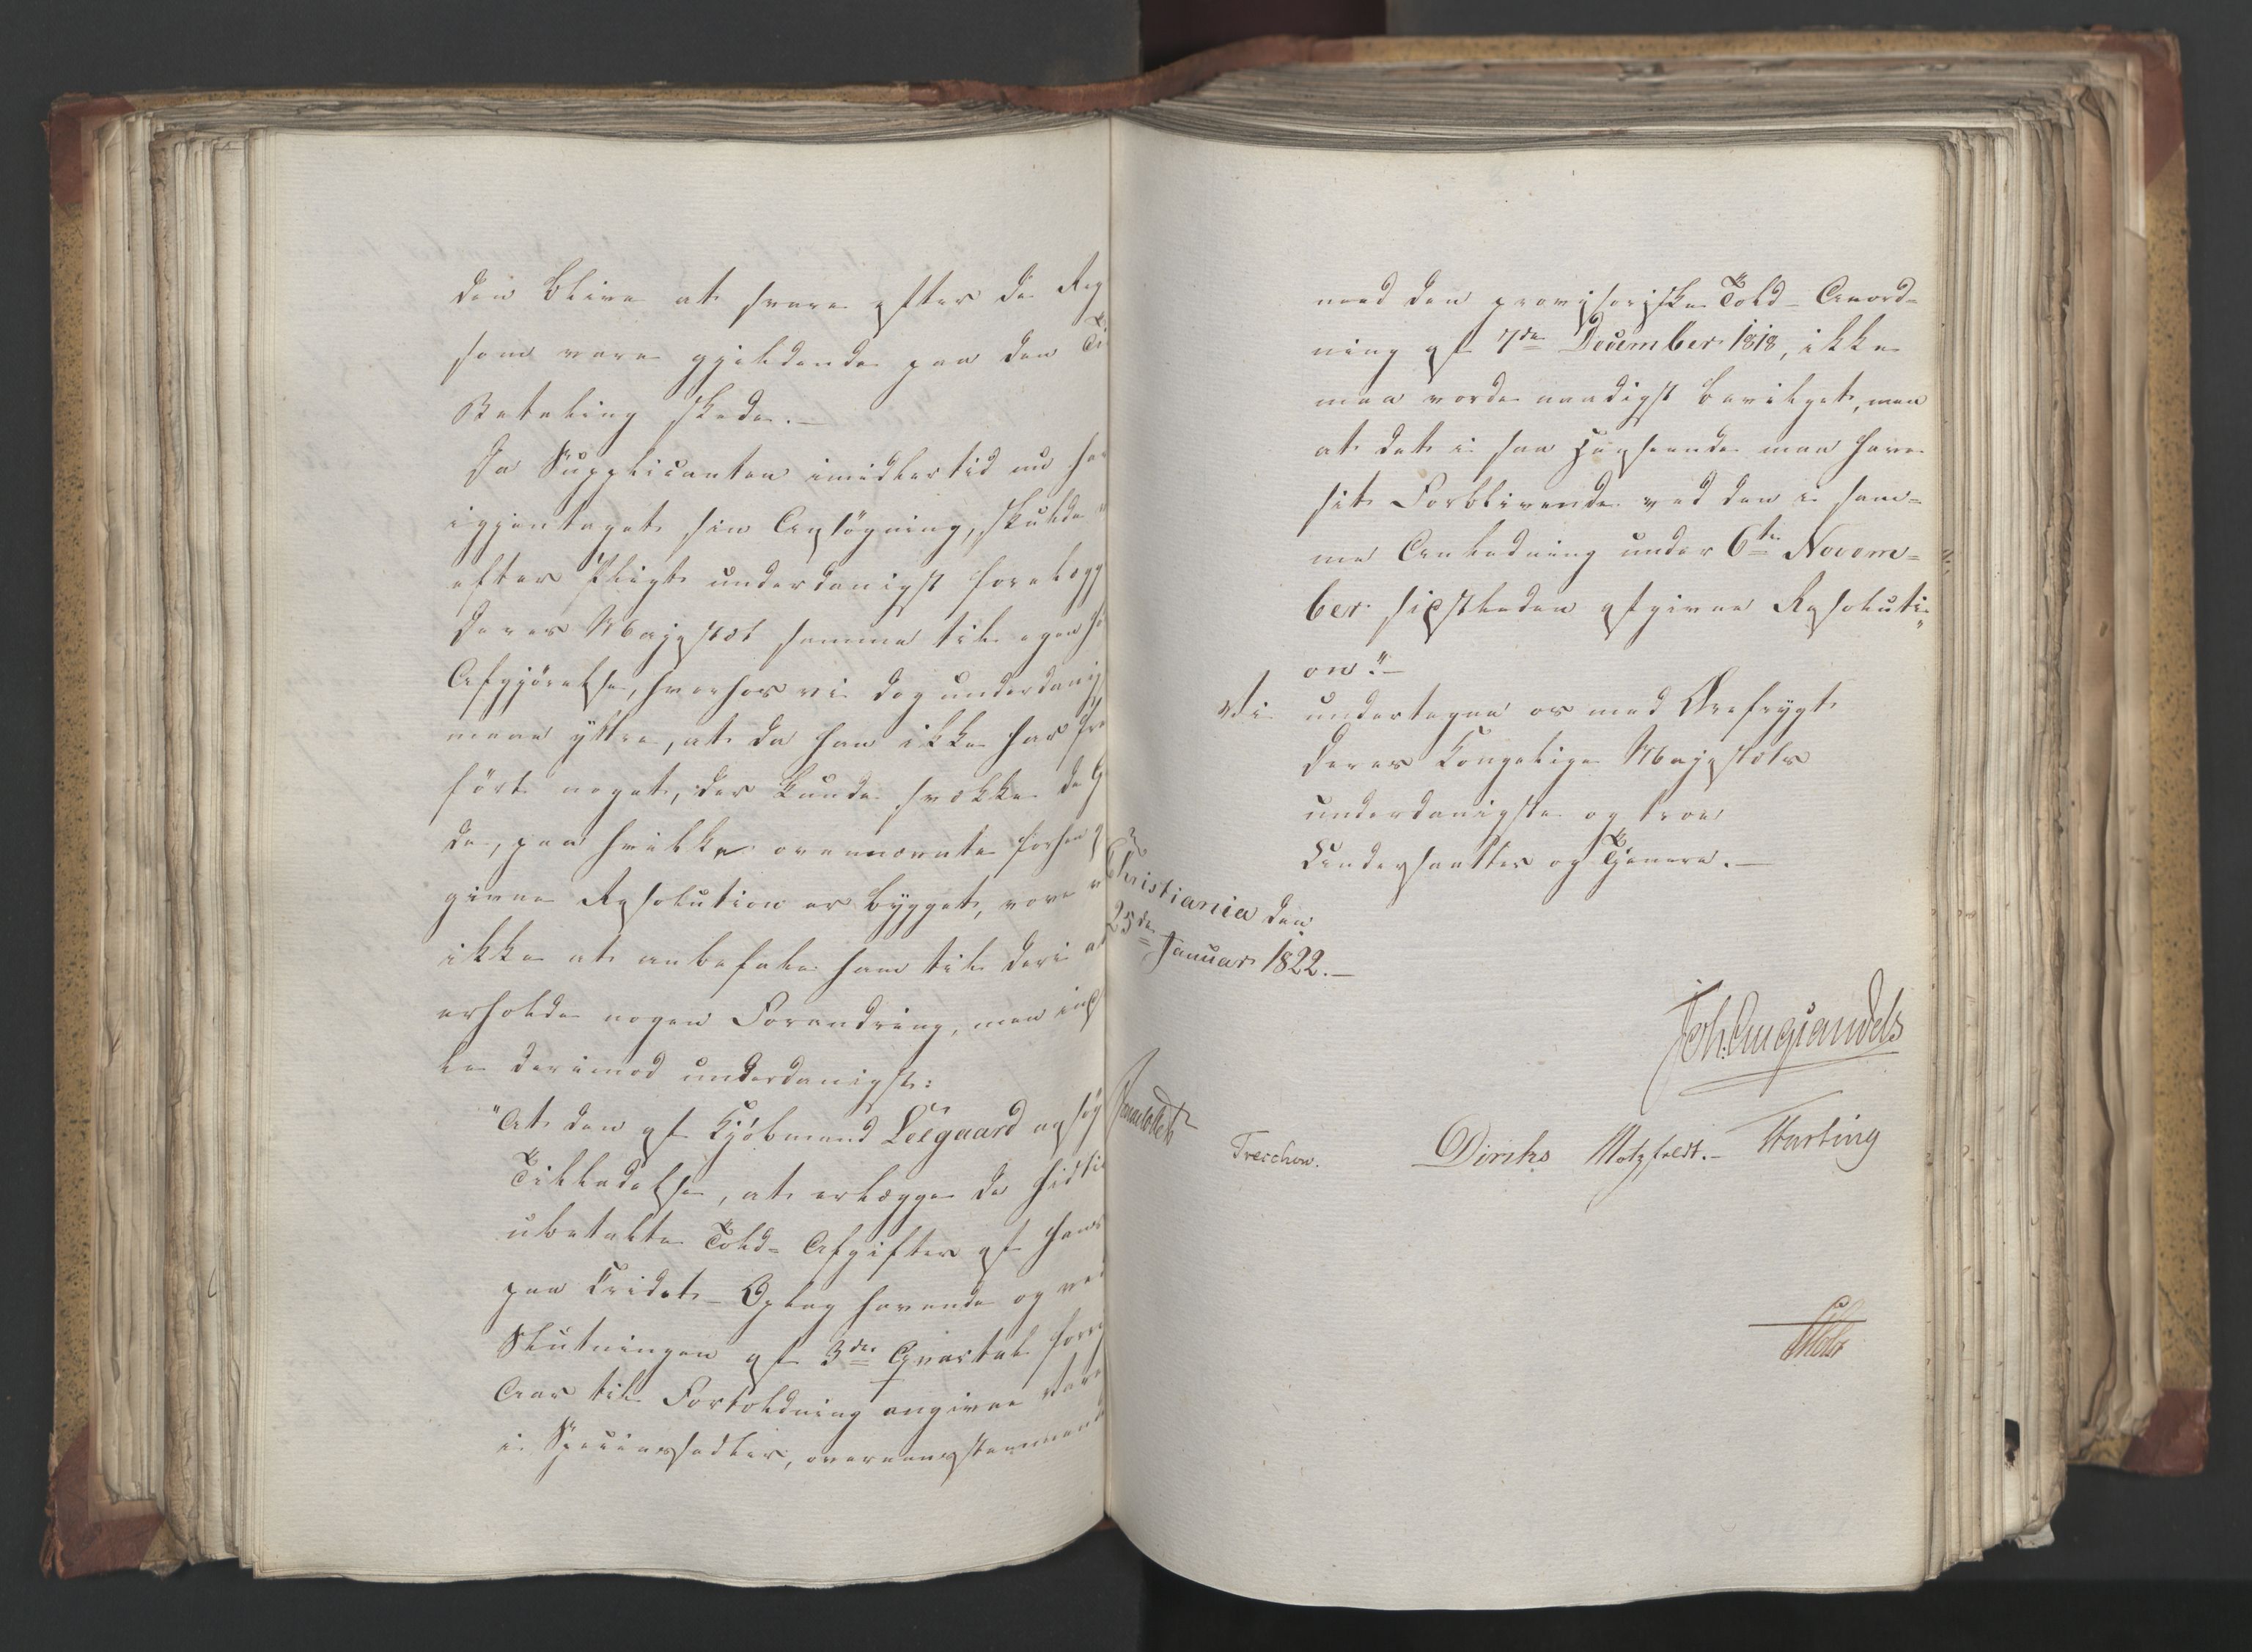 den blive at svare efter de Reg
som vare gjældende paa den Ti
Betaling skede.—
Da Supplicanten imidlertid nu ha
igjentaget sin Ansøgning, skulde
efter Pligt underdanigst forelægg
Deres Majestæt samme til egen hø
Afgjørelse, hvorhos vi dog underdanig
maae yttre, at da han ikke har fre
ført noget, der kunde svække de G
de, paa hvilke ovennævnte forhen
givne Resolution er bygget, vove v
ikke at anbefale ham til deri at
erholde nogen Forandring, men ind
le derimod underdanigst:
"At den af Kjøbmand Leegaard ansøg
Tilladelse, at erlægge de hidtil
ubetalte Told-Afgifter af hans
paa Credit-Oplag havende og ved
Slutningen af 3die Qvartal forrig
Aar til Fortoldning angivne Vare
i Speciessedler, overeensstemmend
med den provisoriske Told-Anord=
ning af 7de December 1818, ikke
maa vorde naadigst bevilget, men
at det i saa Henseende maa have
sit Forblivende ved den i sam=
me Anledning under 6te Novem=
ber sidstleden afgivne Resoluti=
on".—
Vi undertegne os med Ærefrygt
Deres Kongelige Majestæts
underdanigste og troe
Undersaatter og Tjenere.—
Christiania den
25de Januar 1822.—
Joh. Aug. Sandels
Sommerhielm
Treschow. Diriks Motzfeldt.— Harting